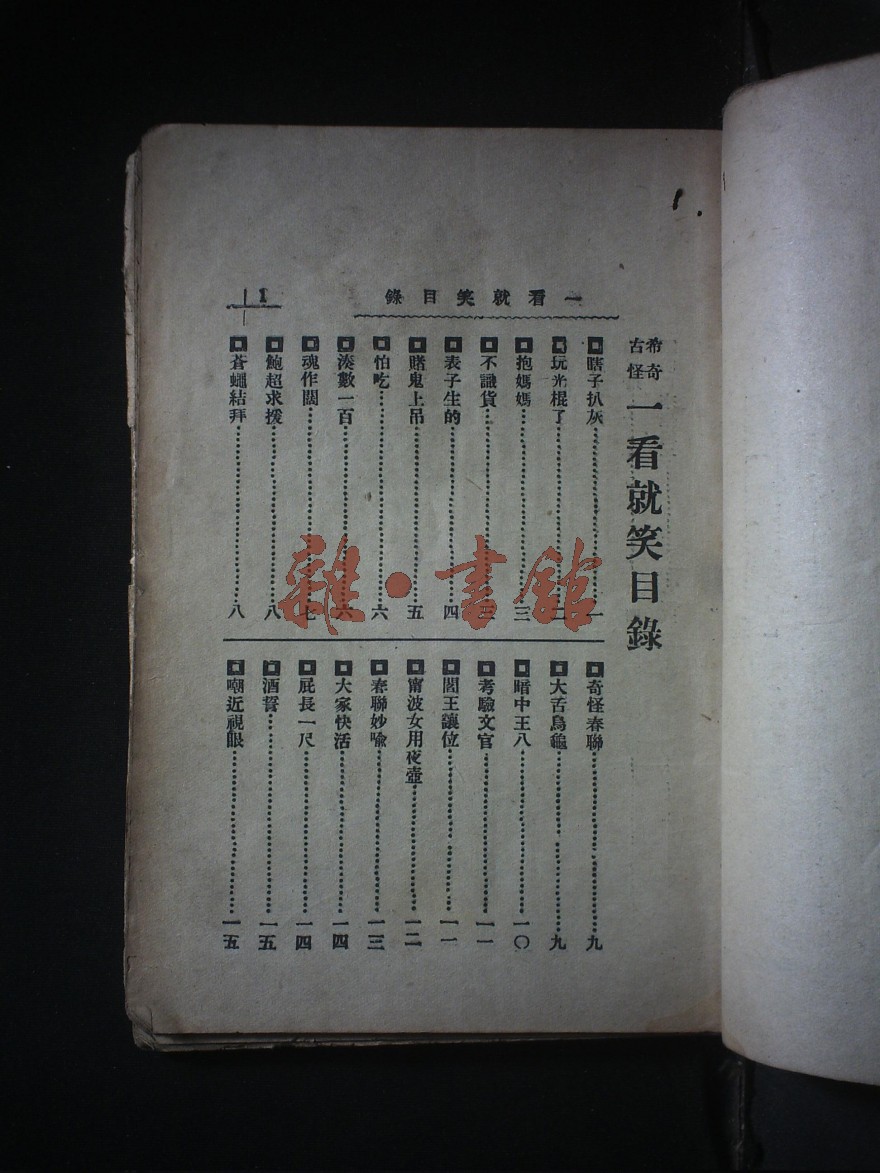 一看就笑目錄
1
希奇古怪 一看就笑目錄
瞎子扒灰 一
玩光棍了 二
抱媽媽 三
不識貨 三
表子生的 四
賭鬼上吊 五
怕吃 六
湊數一百 六
魂作闊 七
鮑超求援 八
蒼蠅結拜 八
奇怪春聯 九
大舌烏龜 九
暗中王八 一〇
考驗文官 一一
閻王讓位 一一
甯波女用夜壺 一二
春聯妙喻 一三
大家快活 一四
屁長一尺 一四
酒誓 一五
嘲近視眼 一五
雜·書館